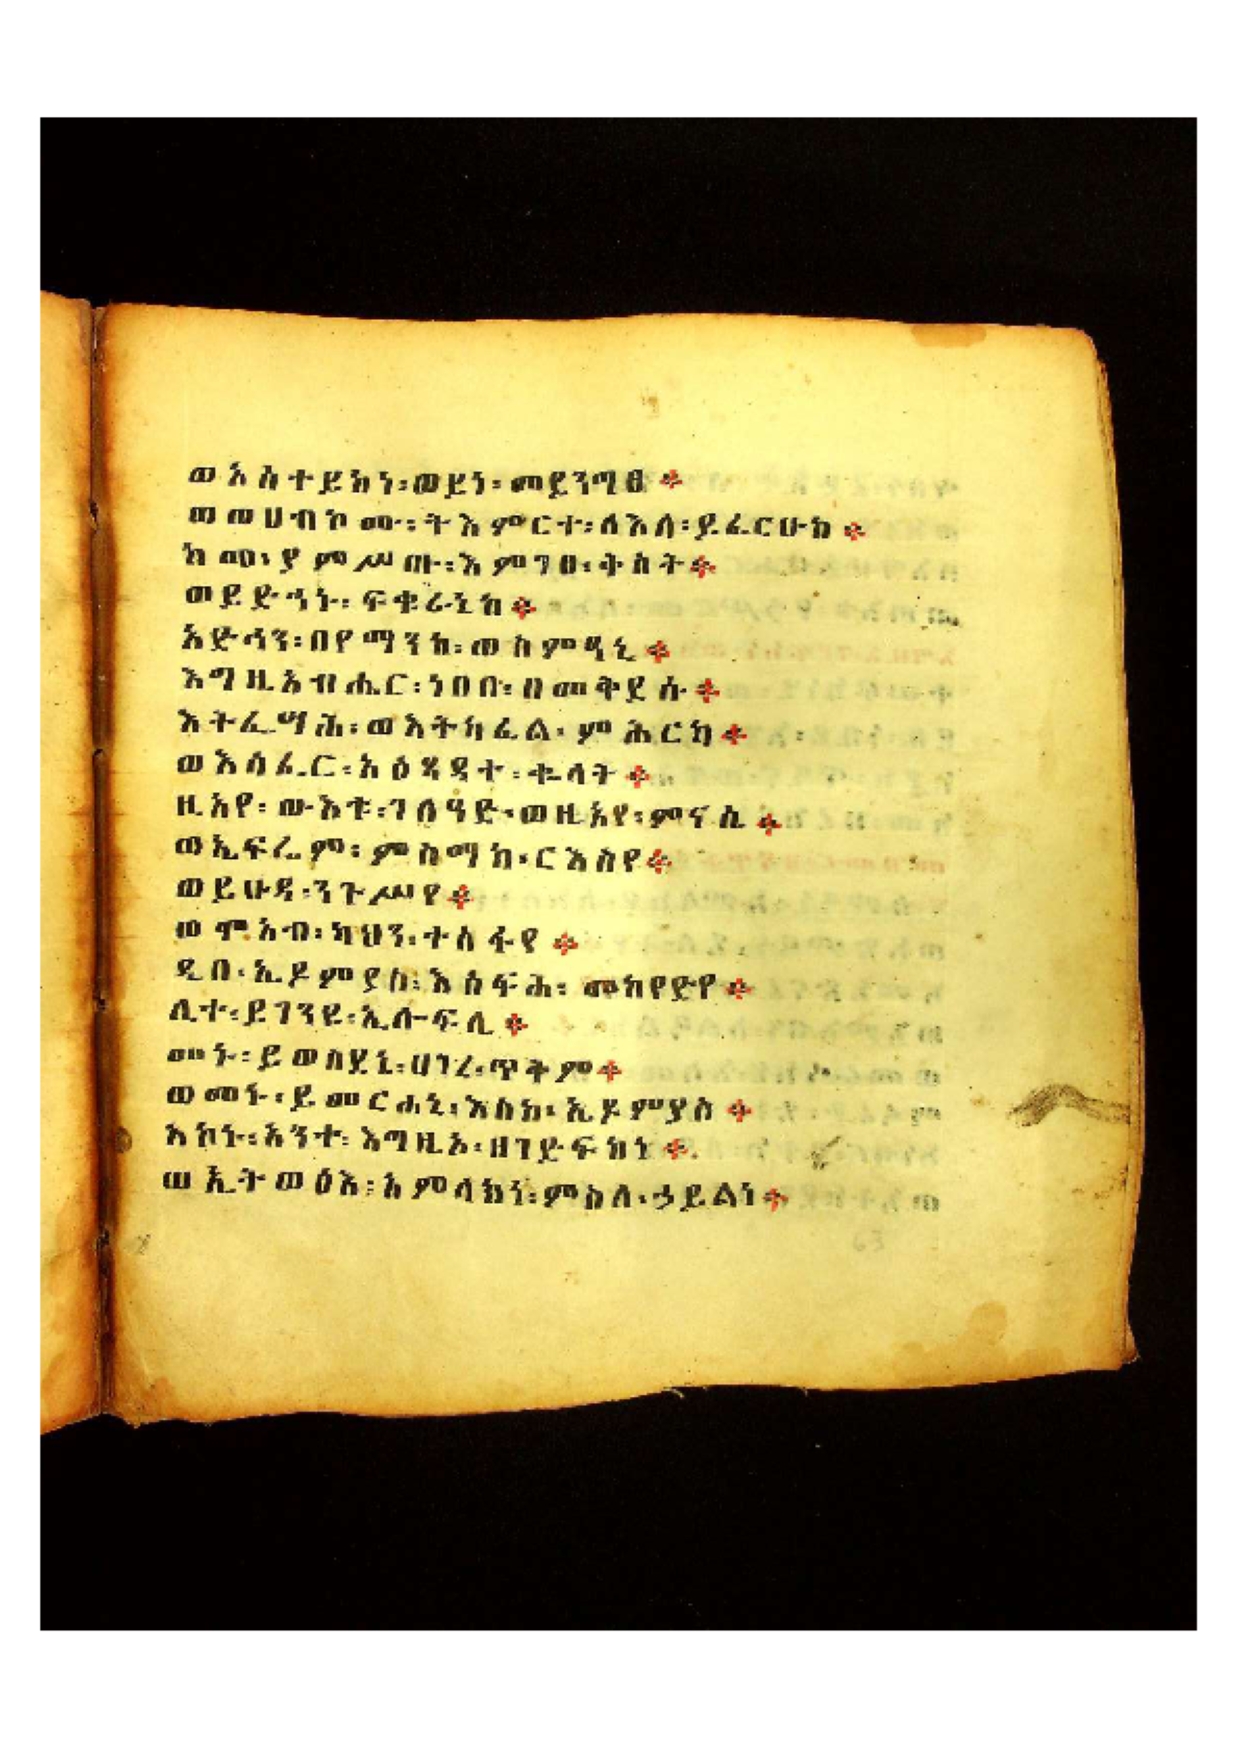 ወአስተይከነ፡ወይነ፡መደንግፀ።
ወወሀብኮሙ፡ትእምርተ፡ለእለ፡ይፈርሁከ።
ከመ፡ያምሥጡ፡እምገፀ፡ቅስት።
ወይድኀኑ፡ፍቁራኒከ።
አድኅን፡በየማንከ፡ወስምዓኒ።
እግዚአብሔር፡ነበበ፡በመቅደሱ።
እትፌሣሕ፡ወእትካፈል፡ምሕርካ።
ወእሳፈር፡አዕጻዳተ፡ቈላት።
ዚአየ፡ውእቱ፡ገለዓድ፡ወዚአየ፡ምናሴ።
ወኤፍሬም፡ምስማከ፡ርእስየ።
ወይሁዳ፡ንጉሥየ።
ወሞአብ፡ካህን፡ተስፋየ።
ዲበ፡ኢዶምያስ፡እሰፍሕ፡መከየድየ።
ሊተ፡ይገንዩ፡ኢሎፍሊ።
መኑ፡ይወስደኒ፡ሀገረ፡ጥቅም።
ወመኑ፡ይመርሐኒ፡እስከ፡ኢዶምያስ።
አኮኑ፡አንተ፡እግዚኦ፡ዘገደፍከነ።
ወኢትወፅእ፡አምላክነ፡ምስለ፡ኃይልነ።